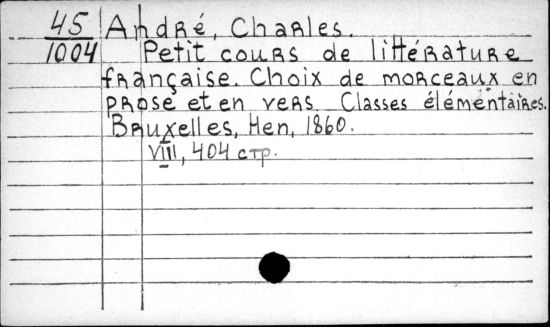 45 André, Charles.
1004 Petit cours de littérature
française. Choix de morceaux en
prose et en vers Classes élémentaires.
Bruxelles, Hen, 1860.
VIII, 404 стр.